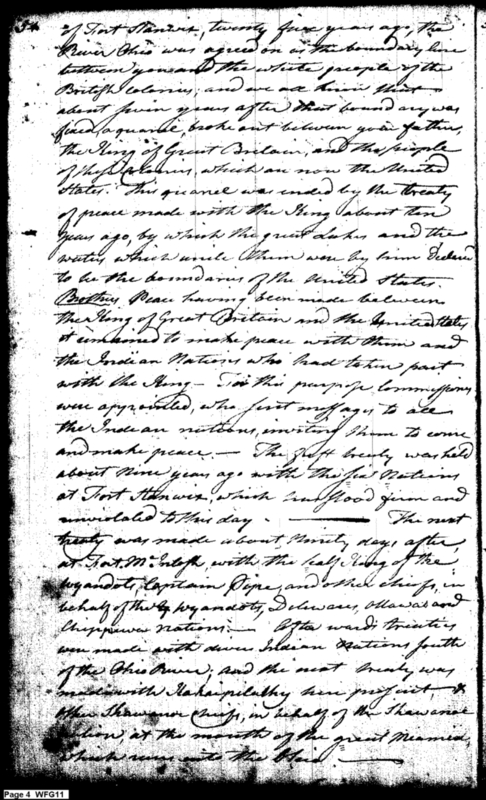 54
of Fort Stanwix, twenty five years ago, the
River Ohio was agreed on as the boundary line
between you and the white people of the
British Colonies; and we all know that
about seven years after that boundary was
fixed, a quarrel, broke out between your father,
the King of Great Britain, and the people
of those Colonies, which are now the United
States. This quarrel was ended by the treaty
of peace made with the King about ten
years ago, by which the great Lakes and the
waters which unite them were by him Declared
to be the boundaries of the United States.
Brothers Peace having been made between
the King of Great Britain and the United States
it remained to make peace with them and
the Indian Nations who had taken part
with the King — For this purpose Commissioners
were appointed, who sent messages to all
the Indian nations, inviting them to come
and make peace. — The first treaty was held
about Nine years ago with the Six Nations
at Fort Stanwix, which has stood firm and
unviolated to this day. — The next
treaty was made about Ninety days after,
at Fort McIntosh, with the half King of the
Wyandots, Captain Pipe, and other chiefs, in
behalf of the Wyandots, Delawares, Ottawas and
Chippewa nations. — Afterwards treaties
were made with divers Indian Nations south
of the Ohio River; and the next treaty was
made with Kakaipilathy here present &
other Shawanoe Chiefs, in behalf of the Shawanoe
nation, at the mouth of the great Meamie,
which runs into the Ohio —
Page 4 WFG11